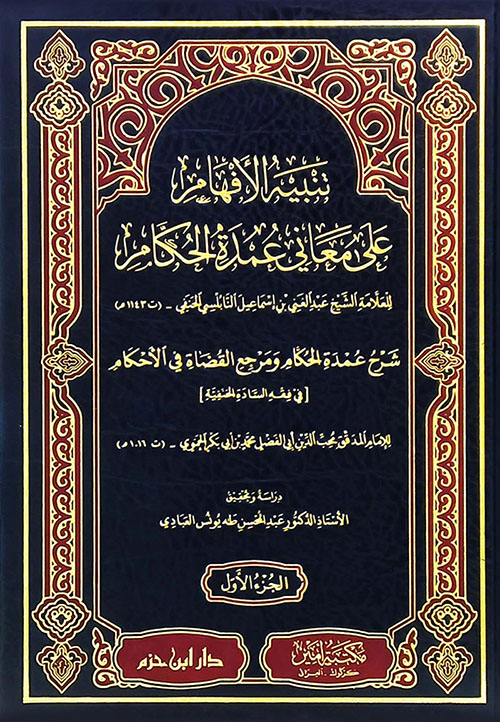 تنبيه الأفهام
على معاني عمدة الحكام
للعلامة الشيخ عبد الغني بن إسماعيل النابلسي الحنفي - (ت ١١٤٣ هـ)
شرح عمدة الحكام ومرجع القضاة في الأحكام
[في فقه السادة الحنفية]
للإمام المدقق محب الدين أبي الفضل محمد بن أبي بكر الحموي - (ت ١٠١٦ هـ)
دراسة وتحقيق
الأستاذ الدكتور عبد المحسن طه يونس العبادي
الجزء الأول
مكتبة أمير
كركوك - العراق
دار ابن حزم